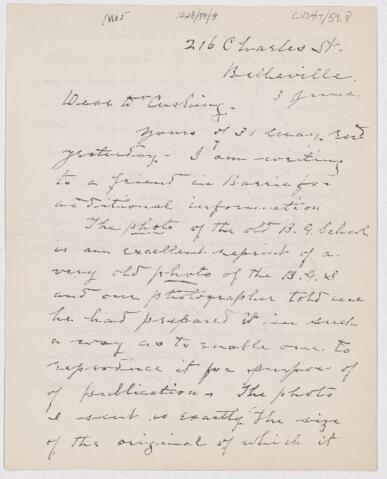 CUS417/59.8
216 Charles St.
Belleville.
3 June.
Dear Dr Cushing.
Yours of 31 May. recd
yesterday. I am writing
to a friend in Barrie for
additional information
The photo of the old B.G. School
is an excellent reprint of a
very old photo of the B.G.S
and our photographer told me
he had prepared it in such
a way as to enable one to
reproduce it for purpose of
of publication. The photo
I sent is exactly the size
of the original of which it